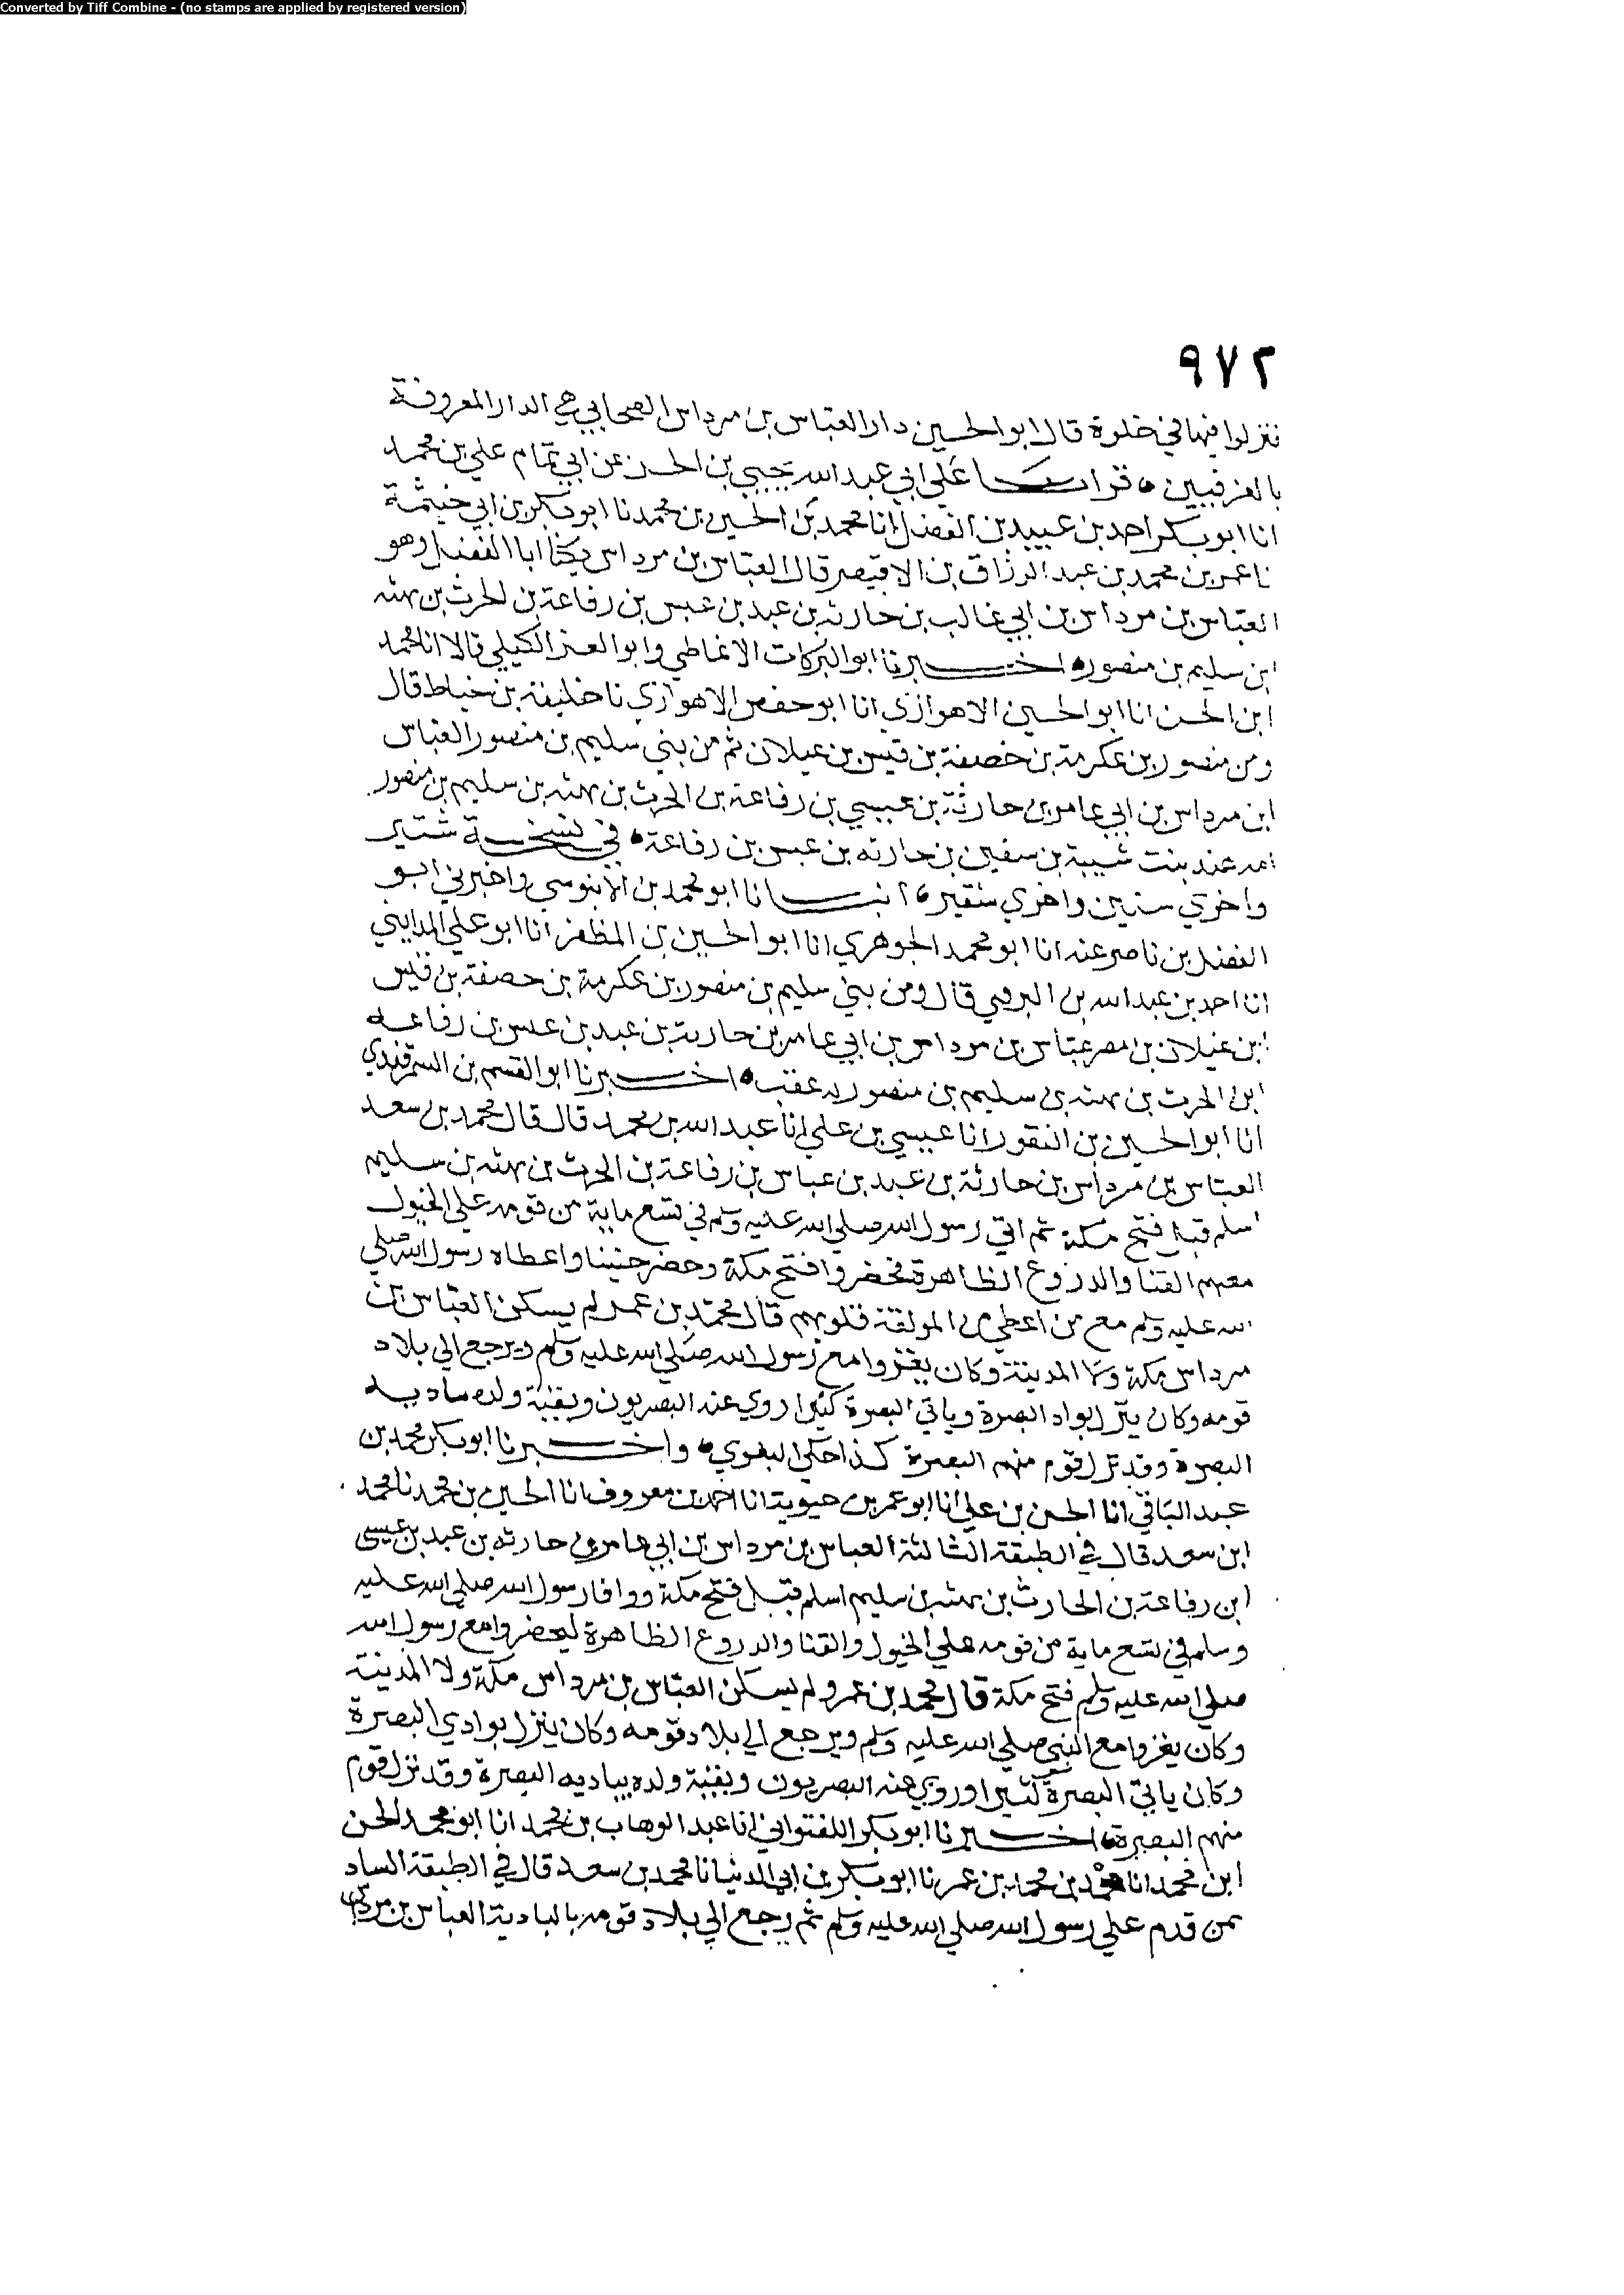 Converted by Tiff Combine - (no stamps are applied by registered version)
٩٧٢
فنزلوا فيها في خلوة قال ابو الحسين دار العباس بن مرداس الصحابي هي الدار المعروفة
قرات على ابي عبد الله يحيى بن الحسن عن ابي تمام علي بن محمد
انا ابو بكر احمد بن عبيد بن الفضل انا محمد بن الحسين بن محمد نا ابو بكر بن ابي خيثمة
نا عمر بن محمد بن عبد الرزاق بن الاقيصر قال العباس بن مرداس يكنا ابا الفضل وهو
العباس بن مرداس بن ابي غالب بن حارثه بن عبد بن عبس بن رفاعة بن الحرث بن بهثه
ابن سليم بن منصور اخبرنا ابو البركات الانماطي وابو العز الكيلي قالا انا محمد
ابن الحسن انا ابو الحسين الاهوازي انا ابو حفص الاهوازي نا خليفة بن خياط قال
ومن منصور بن عكرمة بن خصفة بن قيس بن عيلان ثم من بني سليم بن منصور العباس
ابن مرداس بن ابي عامر بن حارثة بن عبسي بن رفاعة بن الحرث بن بهثه بن سليم بن منصور
امه عند بنت شيبة بن سفين بن حارثه بن عبس بن رفاعة في نسخة شتير
واخري سنين واخري شقير انبانا ابو محمد بن الابنوسي واخبرني ابو
الفضل بن ناصر عنه انا ابو محمد الجوهري انا ابو الحسين بن المظفر انا ابو علي المدايني
انا احمد بن عبد الله بن البرقي قال ومن بني سليم بن منصور بن عكرمة بن خصفة بن قيس
ابن عيلان بن مضر عباس بن مرداس بن ابي عامر بن حارثة بن عبد بن عبس بن رفاعه
ابن الحرث بن بهثه بن سليم بن منصور له عقب اخبرنا ابو القسم بن السمرقندي
انا ابو الحسين بن النقور انا عيسي بن علي انا عبد الله بن محمد قال قال محمد بن سعد
العباس بن مرداس بن حارثة بن عبد بن عباس بن رفاعة بن الحرث بن بهثه بن سليم
اسلم قبل فتح مكة ثم اتي رسول الله صلي الله عليه وسلم في تسع ماية من قومه علي الخيول
معهم القنا والدروع الظاهرة فحضروا فتح مكة وحضر حنينا واعطاه رسول الله صلي
الله عليه وسلم مع من اعطي من المولفة قلوبهم قال محمد بن عمر لم يسكن العباس بن
مرداس مكة ولا المدينة وكان يغزوا مع رسول الله صلي الله عليه وسلم ويرجع الي بلاد
قومه وكان ينزل بواد البصرة وياتي البصرة كثيرا روي عنه البصريون وبقية ولده ببادية
البصرة وقد نزل قوم منهم البصرة كذا حكى البغوي واخبرنا ابو بكر محمد بن
عبد الباقي انا الحسن بن علي انا ابو عمر بن حيوية انا احمد بن معروف انا الحسين بن محمد نا محمد
ابن سعد قال في الطبقة الثالثة العباس بن مرداس بن ابي عامر بن حارثه بن عبد بن عيسى
ابن رفاعة بن الحارث بن بهثه بن سليم اسلم قبل فتح مكة ووافا رسول الله صلي الله عليه
وسلم في تسع ماية من قومه علي الخيول والقنا والدروع الظاهرة ليحضروا مع رسول الله
صلي الله عليه وسلم فتح مكة قال محمد بن عمر ولم يسكن العباس بن مرداس مكة ولا المدينة
وكان يغزوا مع النبي صلي الله عليه وسلم ويرجع الي بلاد قومه وكان ينزل بوادي البصرة
وكان ياتي البصرة كثيرا وروي عنه البصريون وبقية ولده بباديه البصرة وقد نزل قوم
منهم البصرة اخبرنا ابو بكر اللفتواني انا عبد الوهاب بن محمد انا ابو محمد الحسن
ابن محمد انا احمد بن محمد بن عمر نا ابو بكر بن ابي الدنيا نا محمد بن سعد قال في الطبقة الساد
ممن قدم علي رسول الله صلي الله عليه وسلم ثم رجع الي بلاد قومه بالبادية العباس بن مرداس